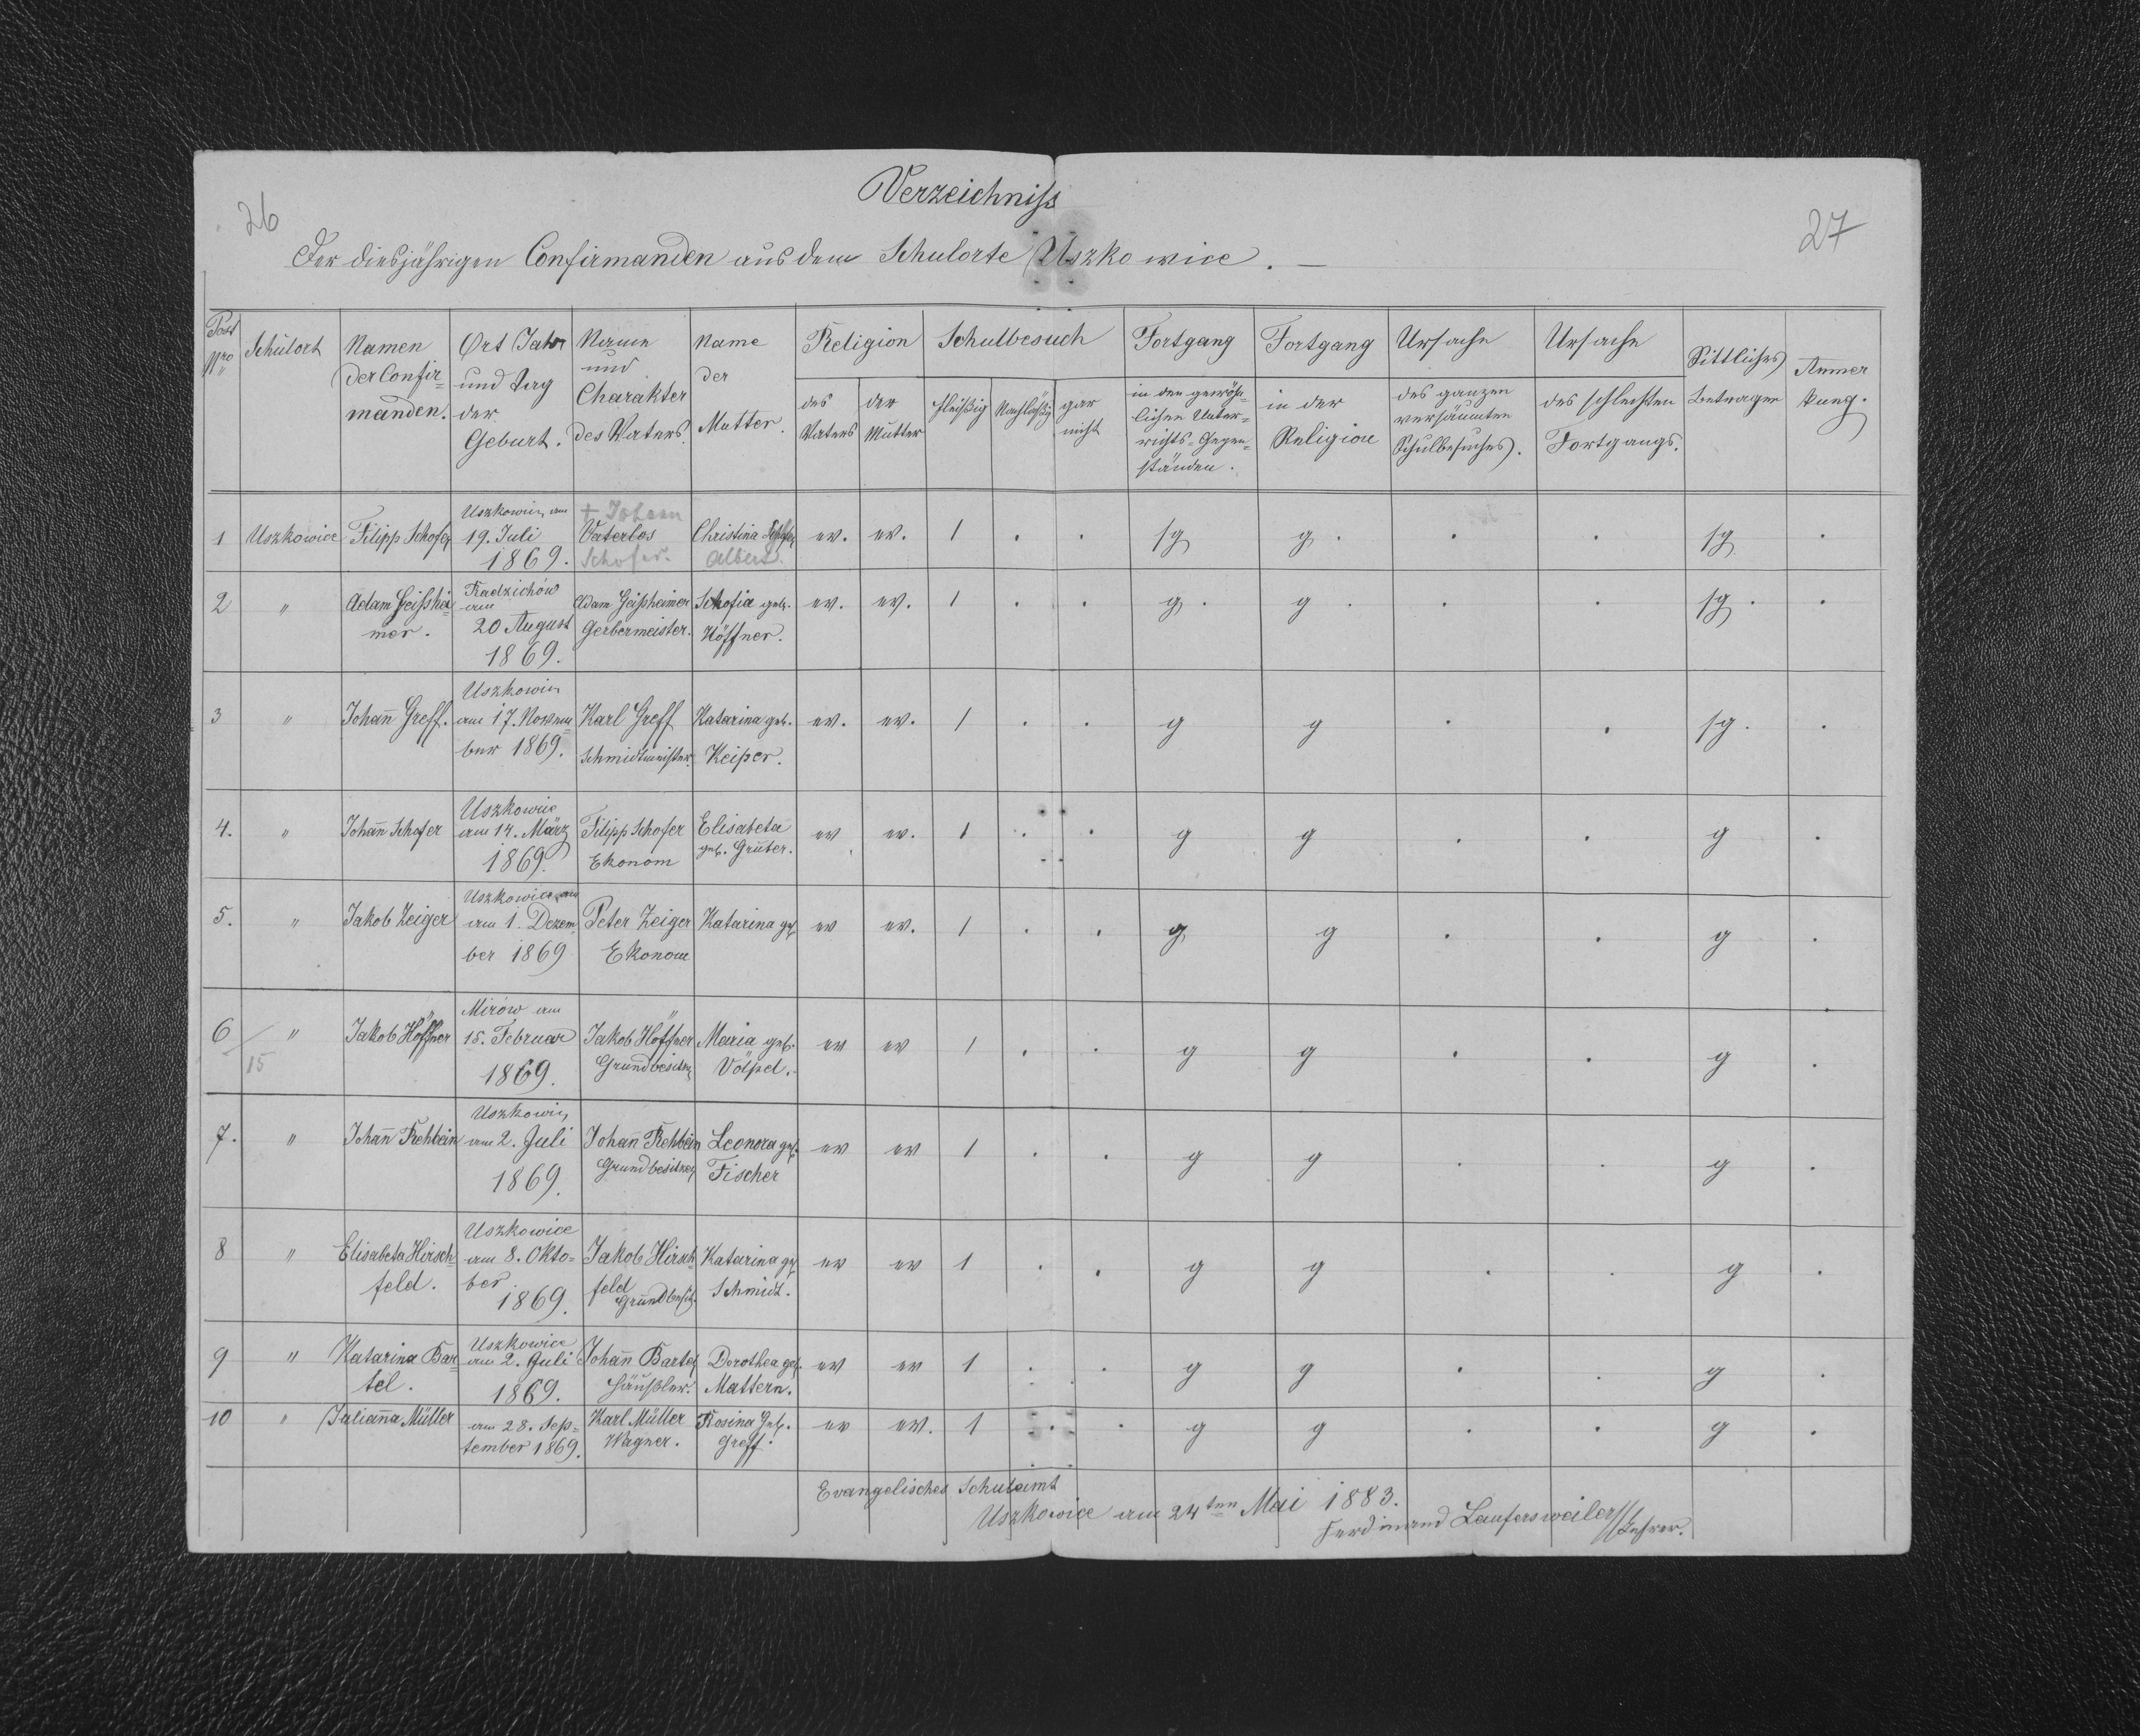 Verzeichniss
26
27
Der diesjährigen Confirmanden aus dem Schulorte Uszkowice. —
Post Nro Schulort Namen der Confir= manden. Ort Jahr und Tag der Geburt. Name und Charakter des Vaters. Name der Mutter. Religion des Vaters der Mutter Schulbesuch fleißig Nachläßig gar nicht Fortgang in den gewöhn= lichen Unter= richts=Gegen= ständen. Fortgang in der Religion Ursache des ganzen versäumten Schulbesuches. Ursache des schlechten Fortgangs. Sittliches Betragen Anmer kung.
Uszkowice am + Johann
1 Uszkowice Filipp Schofer 19. Juli Vaterlos Christina ev. ev. 1 . . sg g . . . sg .
1869. Schofer. Albert.
Radzichów
2 " Adam Geisshei am Adam Geissheimer Schofia geb. ev. ev. 1 . . g . g . . . sg . .
mer. 20 August Gerbermeister. Höffner.
1869.
Uszkowice
3 " Johañ Greff. am 17. Novem= Karl Greff Katarina geb. ev. ev. 1 . . g g . . sg . .
ber 1869. Schmidtmeister. Keiper.
Uszkowice
4. " Johañ Schofer am 14. März Filipp Schofer Elisabeta ev ev. 1 . . g g . . g .
1869. Ekonom geb. Gruter.
Uszkowice am
5. " Jakob Zeiger am 1. Dezem Peter Zeiger Katarina geb ev ev. 1 . . g g . . g .
ber 1869 Ekonom
Mirów am
6 " Jakob Höffner 15. Februar Jakob Höffner Maria geb. ev ev 1 . . g g . . g .
15 1869. Grundbesitzer Völpel.
Uszkowice
7. " Johañ Rehbein am 2. Juli Johañ Rehbein Leonora geb. ev ev 1 . . g g . . g .
1869. Grundbesitzer Fischer
Uszkowice
8 " Elisabeta Hirsch= am 8. Okto= Jakob Hirsch Katarina geb ev ev 1 . . g g . . g .
feld. ber feld Schmidt.
1869. Grundbesitz.
Uszkowice
9 " Katarina Bar= am 2. Juli Johañ Bartel Dorothea geb. ev ev 1 . . g g . . g .
tel. 1869. Häußler. Mattern.
10 " Juliaña Müller am 28. Sep= Karl Müller Rosina Geb. ev ev. 1 . . g g . . g .
tember 1869. Wagner. Greff.
Evangelisches Schulamt
Uszkowice am 24ten Mai 1883.
Ferdinand Laufersweiler // Lehrer.